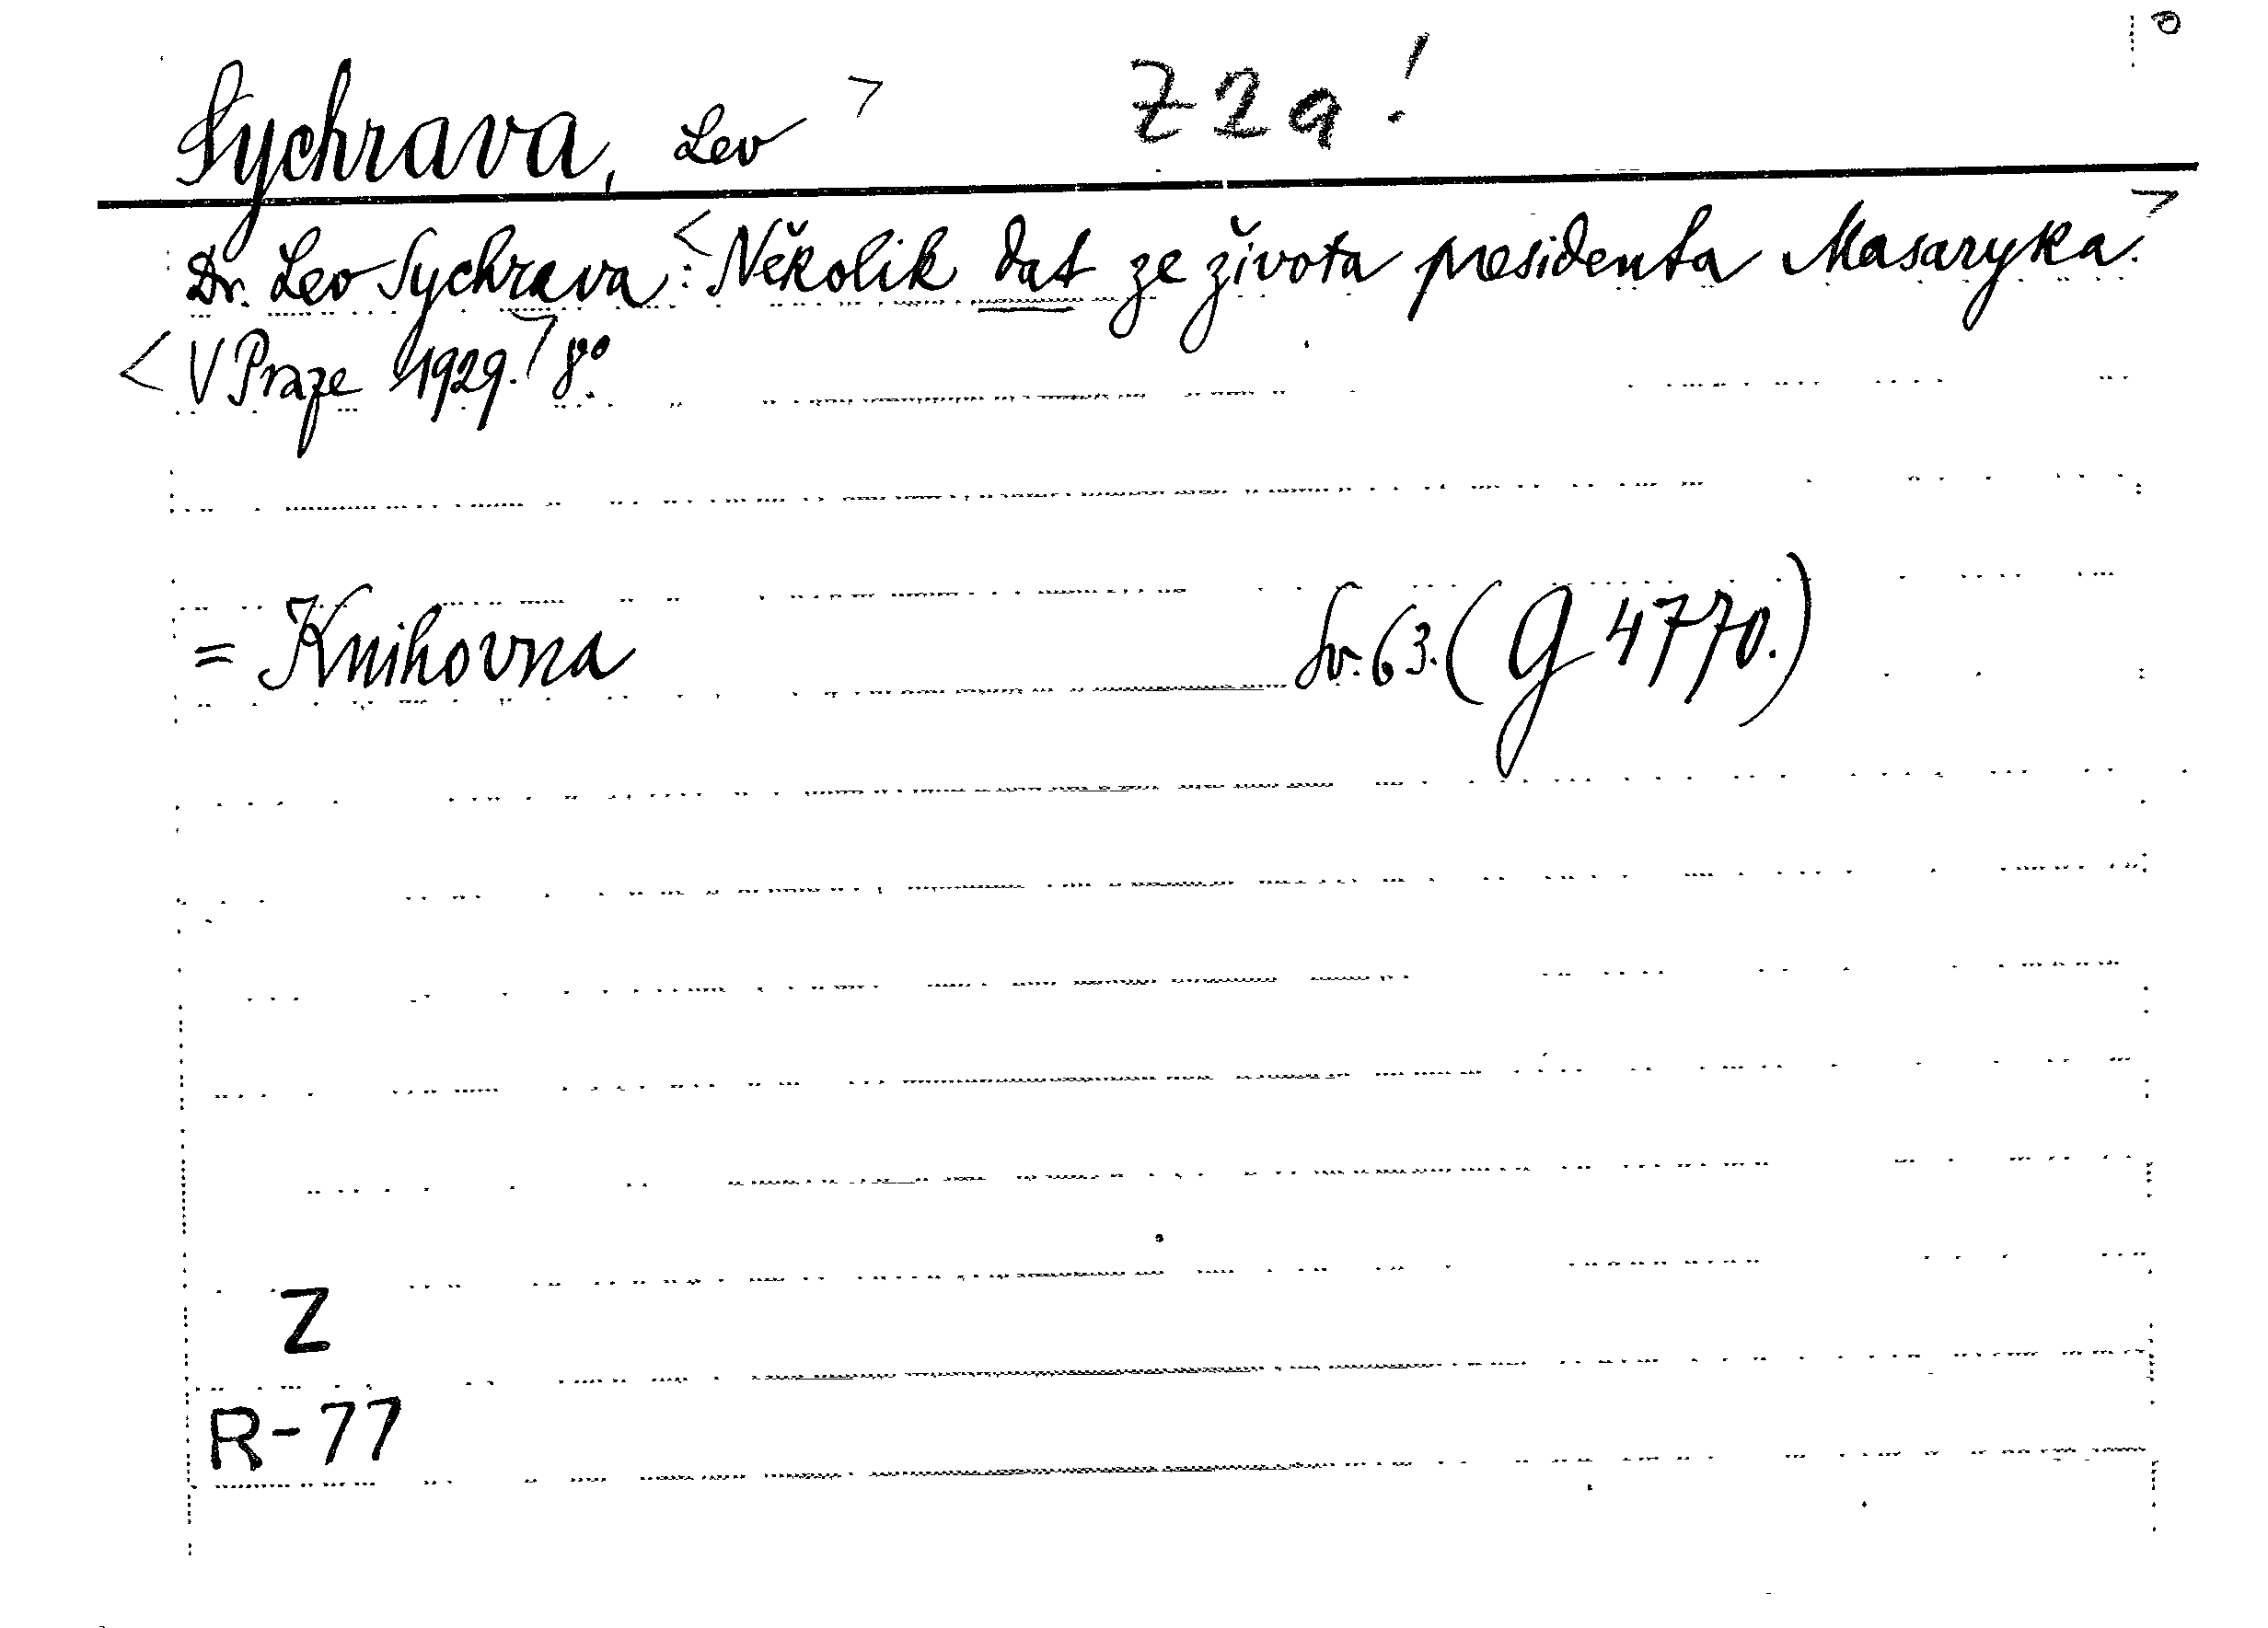 Sychrava, Lev > Z 2 a !
Dr. Lev Sychrava: <Několik dat ze života presidenta Masaryka.>
<V Praze 1929.> 8°.
= Knihovna Sv. 63. (G 4770.)
Z
R-77